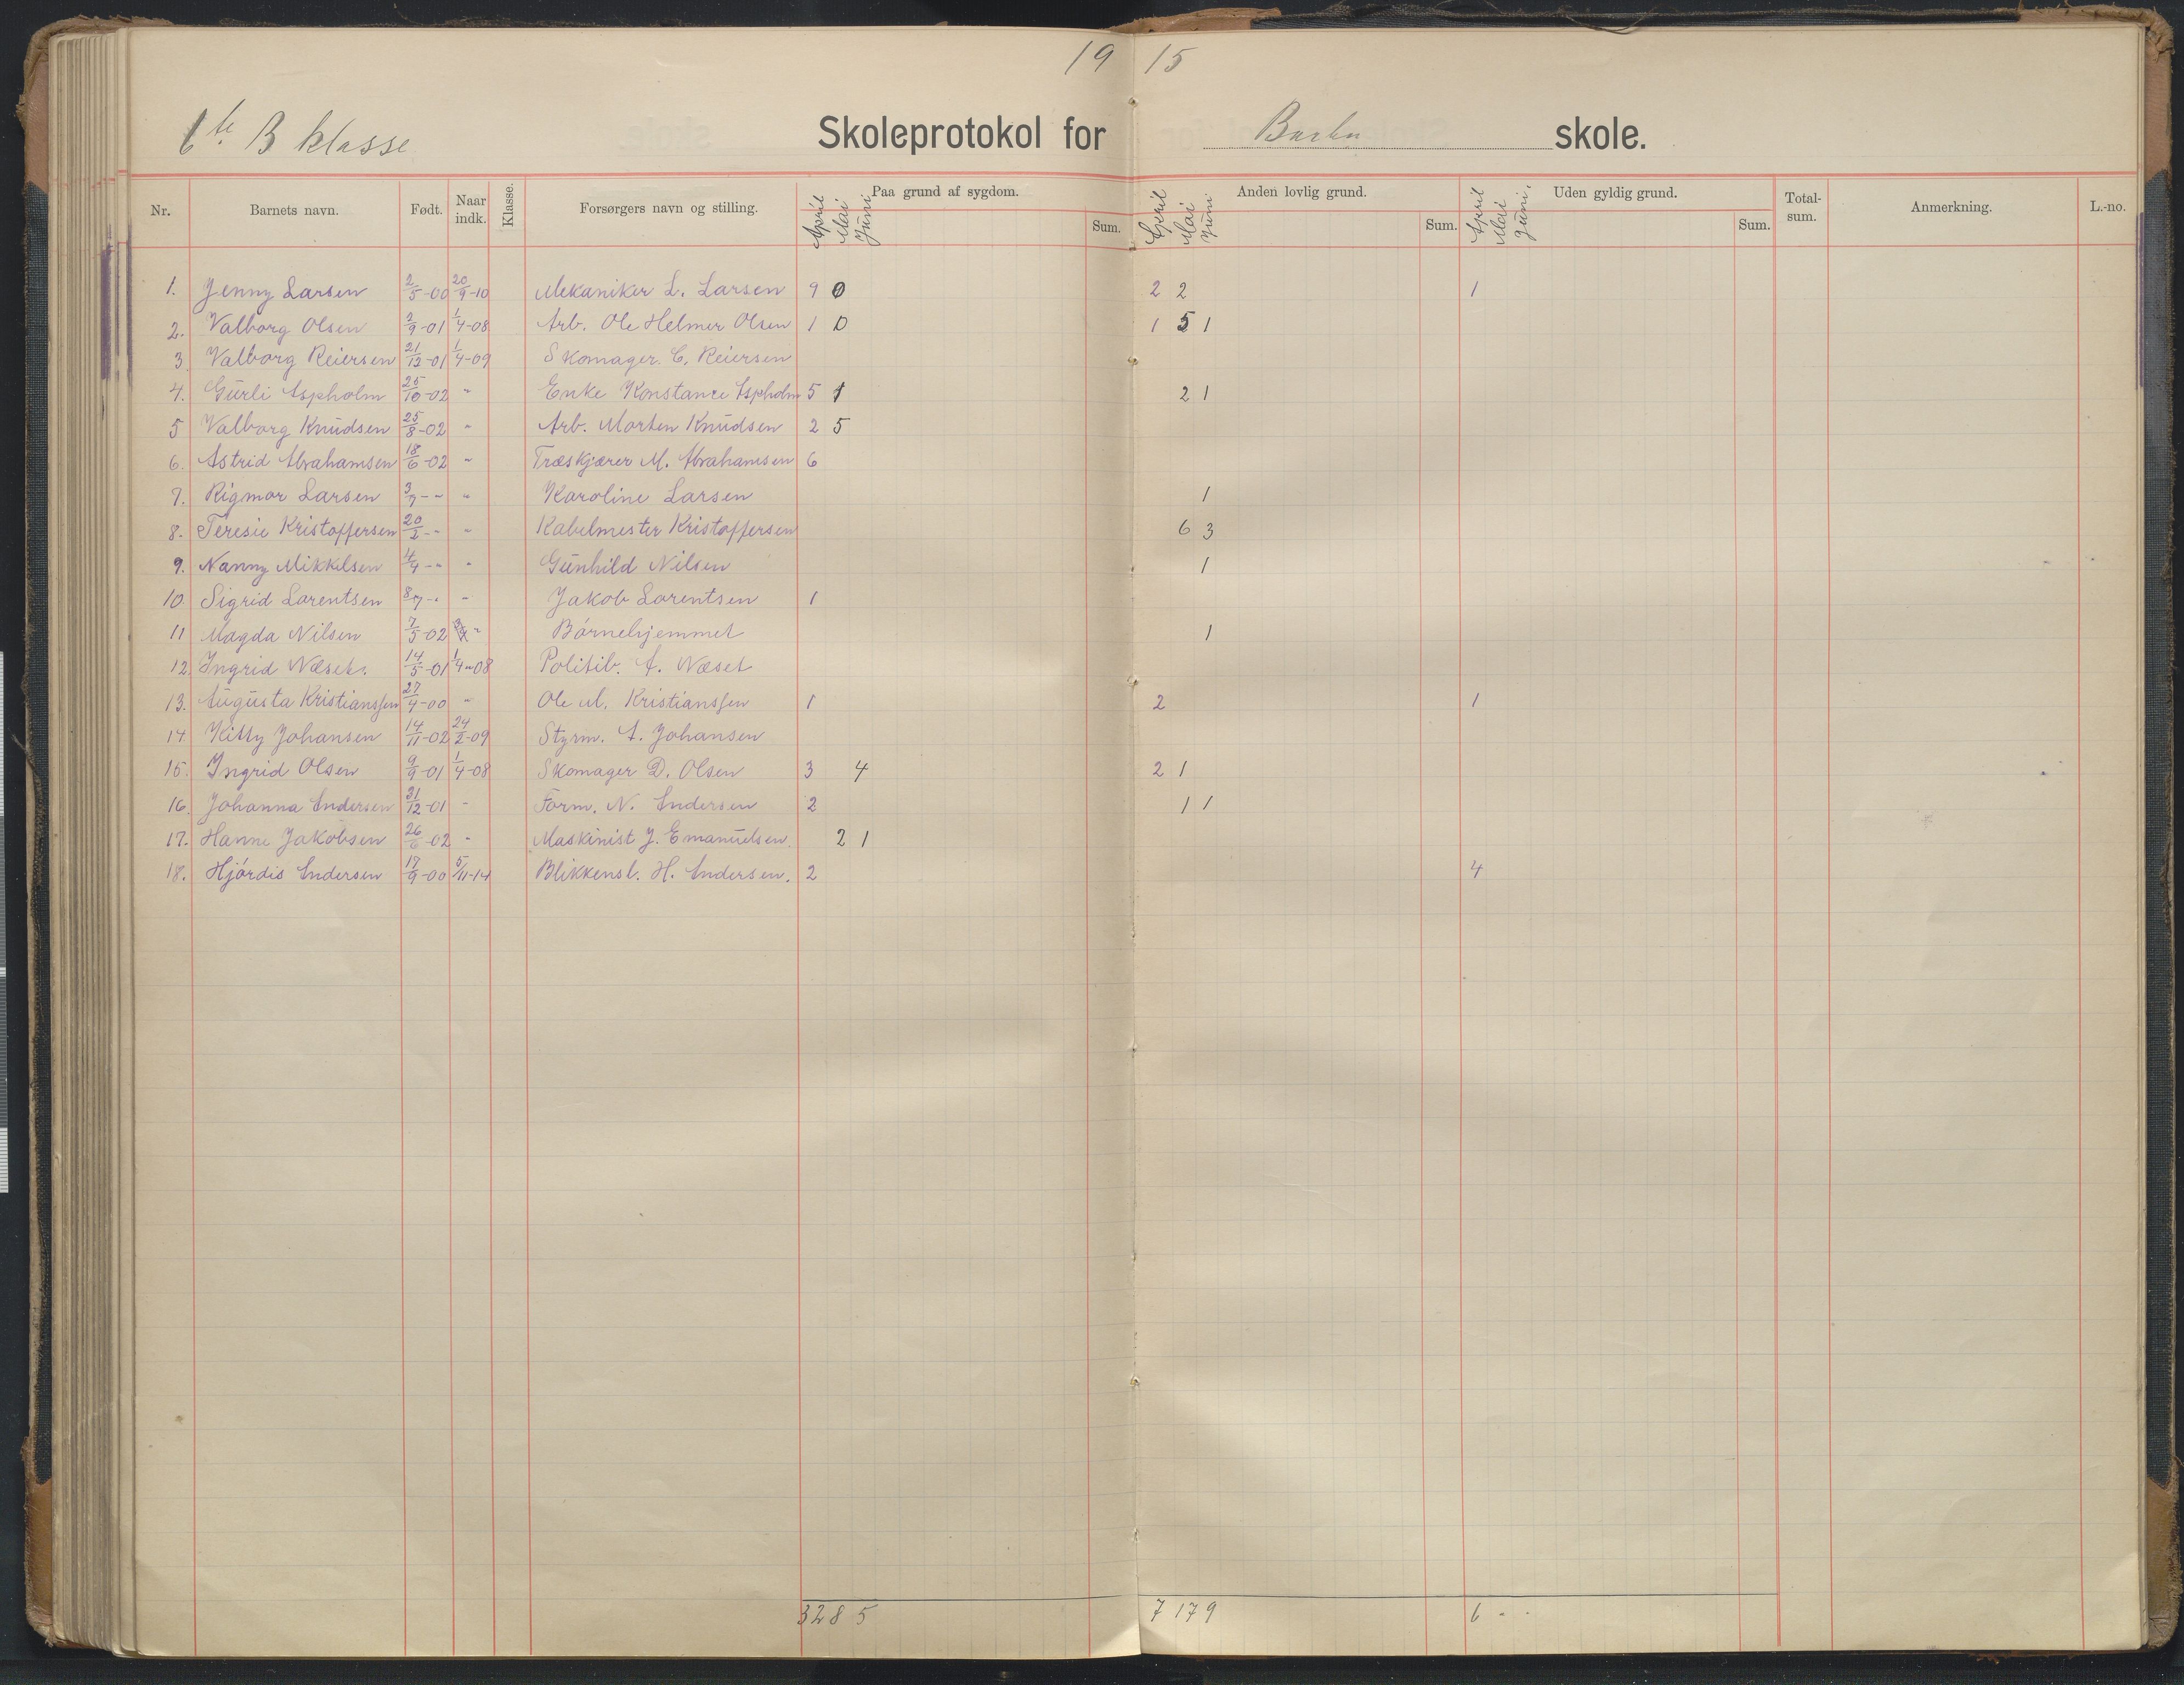 19 15
6te B klasse Skoleprotokol for Barbu skole.
Nr. Barnets navn. Født. Naar indk. Klasse. Forsørgers navn og stilling. Paa grund af sygdom. April Mai Juni Sum. Anden lovlig grund. April Mai Juni Sum. Uden gyldig grund. April Mai Juni. Sum. Total-sum. Anmerkning. L.-no.
1. Jenny Larsen 2/5-00 20/9-10 Mekaniker L. Larsen 9 0 2 2 1
2. Valborg Olsen 2/9-01 1/4-08 Arb. Ole Helmer Olsen 1 0 1 5 1
3. Valborg Reiersen 21/12-01 1/4-09 Skomager. C. Reiersen
4. Gurli Aspholm 25/10-02 " Enke Konstanze Aspholm 5 1 2 1
5 Valborg Knudsen 25/8-02 " Arb. Morten Knudsen 2 5
6. Astrid Abrahamsen 18/6-02 " Træskjærer M. Abrahamsen 6
7. Rigmor Larsen 3/7-" " Karoline Larsen 1
8. Teresie Kristoffersen 20/2-" " Kabelmester Kristoffersen 6 3
9. Nanny Mikkelsen 4/4-" " Gunhild Nilsen 1
10. Sigrid Lorentsen 8/7-" " Jakob Lorentsen 1
11 Magda Nilsen 7/5-02 " Børnehjemmet 1
12. Ingrid Næset. 14/5-01 1/4-08 Politib. A. Næset
13. Augusta Kristianssen 27/4-00 " Ole M. Kristianssen 1 2 1
14 Kitty Johansen 14/11-02 24/2-09 Styrm. A. Johansen
15. Ingrid Olsen 9/9-01 1/4-08 Skomager D. Olsen 3 4 2 1
16. Johanna Andersen 31/12-01 " Form. N. Andersen 2 1 1
17. Hanne Jakobsen 26/6-02 " Maskinist J. Emanuelsen. 2 1
18. Hjørdis Andersen 17/9-00 5/11-14 Blikkensl. H. Andersen. 2 4
32 8 5 7 17 9 6 " "